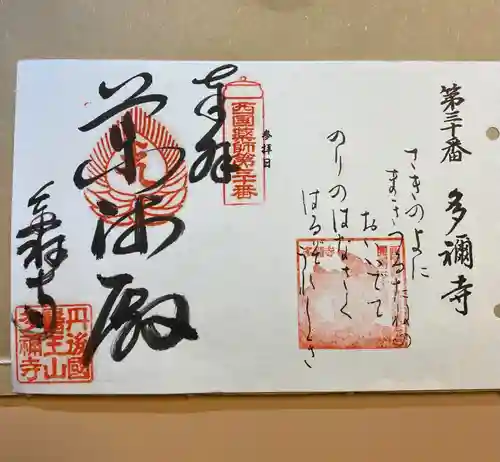 第三十番 多禰寺
さきのよに
まきつるたねの
おいいでて
のりのはなさく
はるぞうれしき
参拝日
奉拝
西国薬師第三十番
薬師殿
多祢寺
丹後國
醫王山
多禰寺